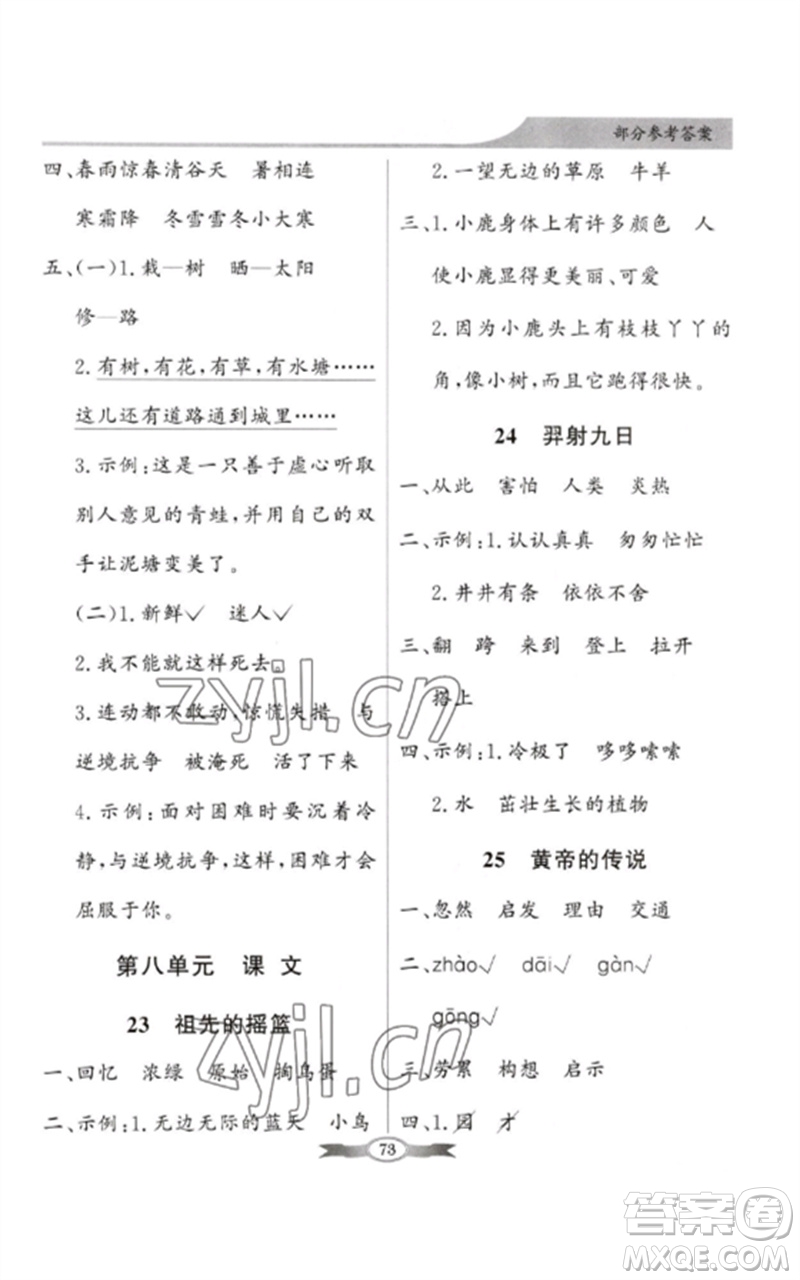 部分参考答案
四、春雨惊春清谷天　暑相连
寒霜降　冬雪雪冬小大寒
五、(一)1. 栽—树　晒—太阳
修—路
2. 有树，有花，有草，有水塘……
这儿还有道路通到城里……
3. 示例：这是一只善于虚心听取
别人意见的青蛙，并用自己的双
手让泥塘变美了。
(二)1. 新鲜√　迷人√
2. 我不能就这样死去。
3. 连动都不敢动，惊慌失措　与
逆境抗争　被淹死　活了下来
4. 示例：面对困难时要沉着冷
静，与逆境抗争，这样，困难才会
屈服于你。
第八单元　课文
23　祖先的摇篮
一、回忆　浓绿　原始　掏鸟蛋
二、示例：1. 无边无际的蓝天　小鸟
2. 一望无边的草原　牛羊
三、1. 小鹿身体上有许多颜色　人
使小鹿显得更美丽、可爱
2. 因为小鹿头上有枝枝丫丫的
角，像小树，而且它跑得很快。
24　羿射九日
一、从此　害怕　人类　炎热
二、示例：1. 认认真真　匆匆忙忙
2. 井井有条　依依不舍
三、翻　跨　来到　登上　拉开
搭上
四、示例：1. 冷极了　哆哆嗦嗦
2. 水　茁壮生长的植物
25　黄帝的传说
一、忽然　启发　理由　交通
二、zhào√　dāi√　gàn√
gōng√
三、劳累　构想　启示
四、1. 园　才
73
zyjl.cn
zyjl.cn
答案圈
MXQE.COM